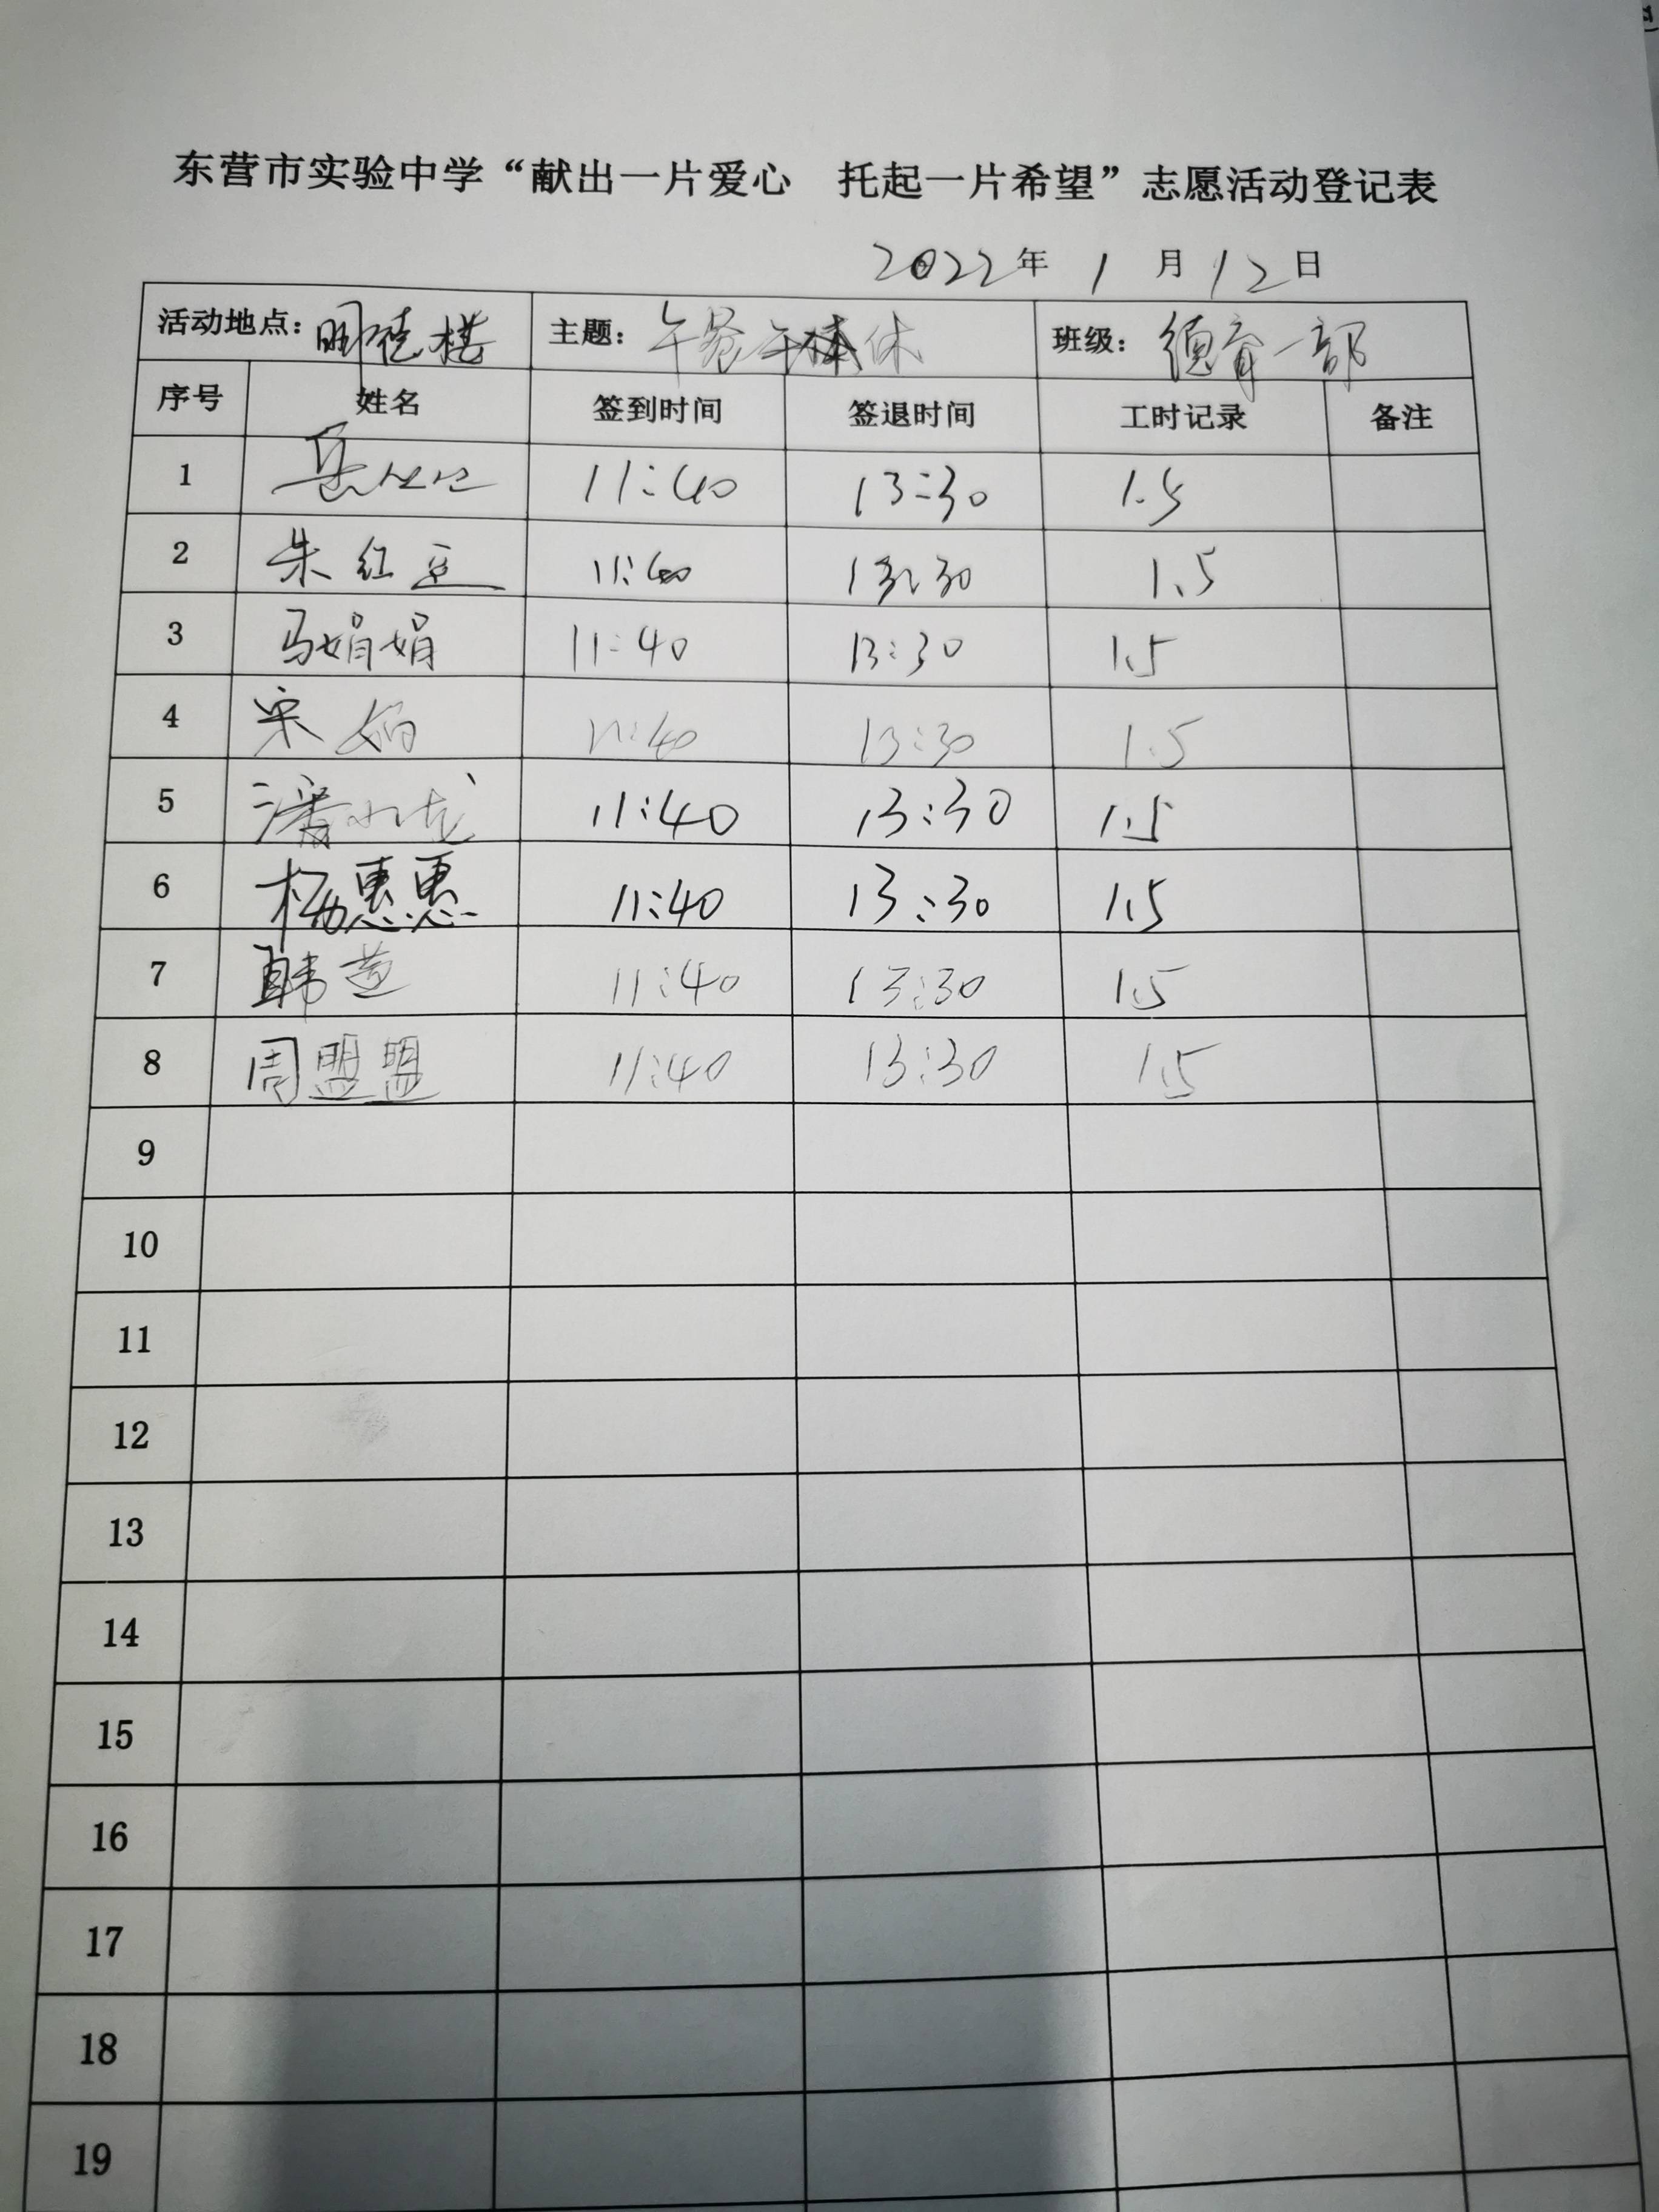 东营市实验中学“献出一片爱心 托起一片希望”志愿活动登记表
2022年 1 月 12 日
活动地点：明德楼 主题：午餐午休 班级：德育一部
序号 姓名 签到时间 签退时间 工时记录 备注
1 11:40 13:30 1.5
2 朱红豆 11:40 13:30 1.5
3 马娟娟 11:40 13:30 1.5
4 宋娟 11:40 13:30 1.5
5 潘小龙 11:40 13:30 1.5
6 杨惠惠 11:40 13:30 1.5
7 韩 11:40 13:30 1.5
8 周盟盟 11:40 13:30 1.5
9
10
11
12
13
14
15
16
17
18
19